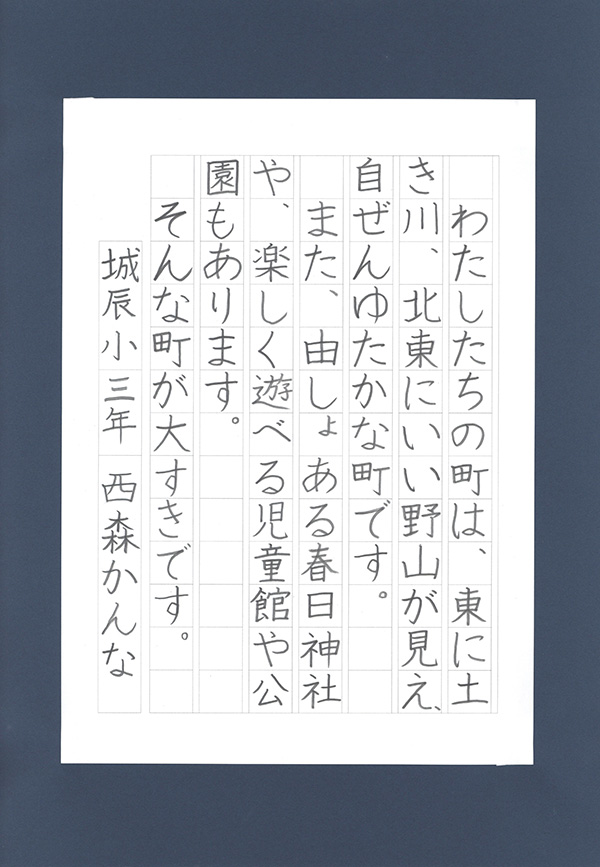 わたしたちの町は、東に土
き川、北東にいい野山が見え、
自ぜんゆたかな町です。
また、由しょある春日神社
や、楽しく遊べる児童館や公
園もあります。
そんな町が大すきです。
城辰小三年 西森かんな